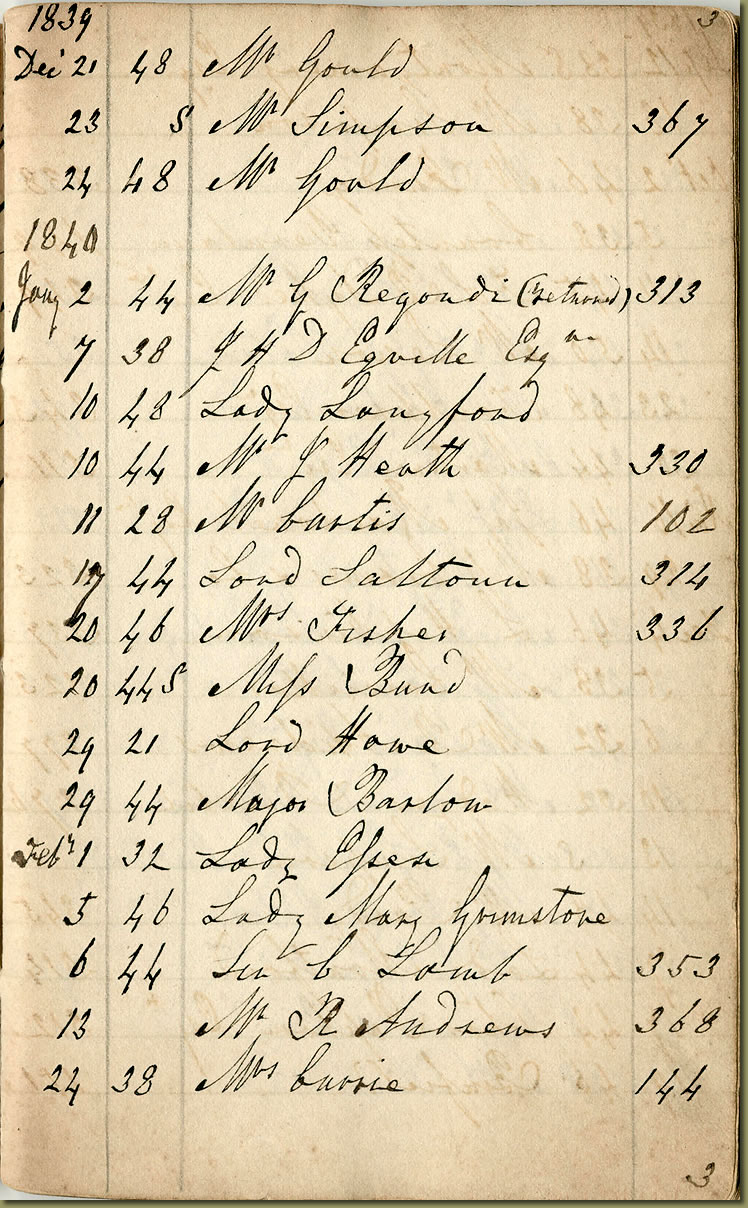 1839 3
Decr 21 48 Mr Gould
23 S Mr Simpson 367
24 48 Mr Gould
1840
Jany 2 44 Mr G Regondi (returned) 313
7 38 J H D Egville Esqre
10 48 Lady Langford
10 44 Mr J Heath 330
11 28 Mr Curtis 102
17 44 Lord Saltoun 314
20 46 Mrs Fisher 336
20 44 S Miss Bund
29 21 Lord Howe
29 44 Major Barlow
Febr 1 32 Lady Essex
5 46 Lady Mary Grimstone
6 44 Sir C Lamb 353
13 Mr R Andrews 368
24 38 Mrs Currie 144
3